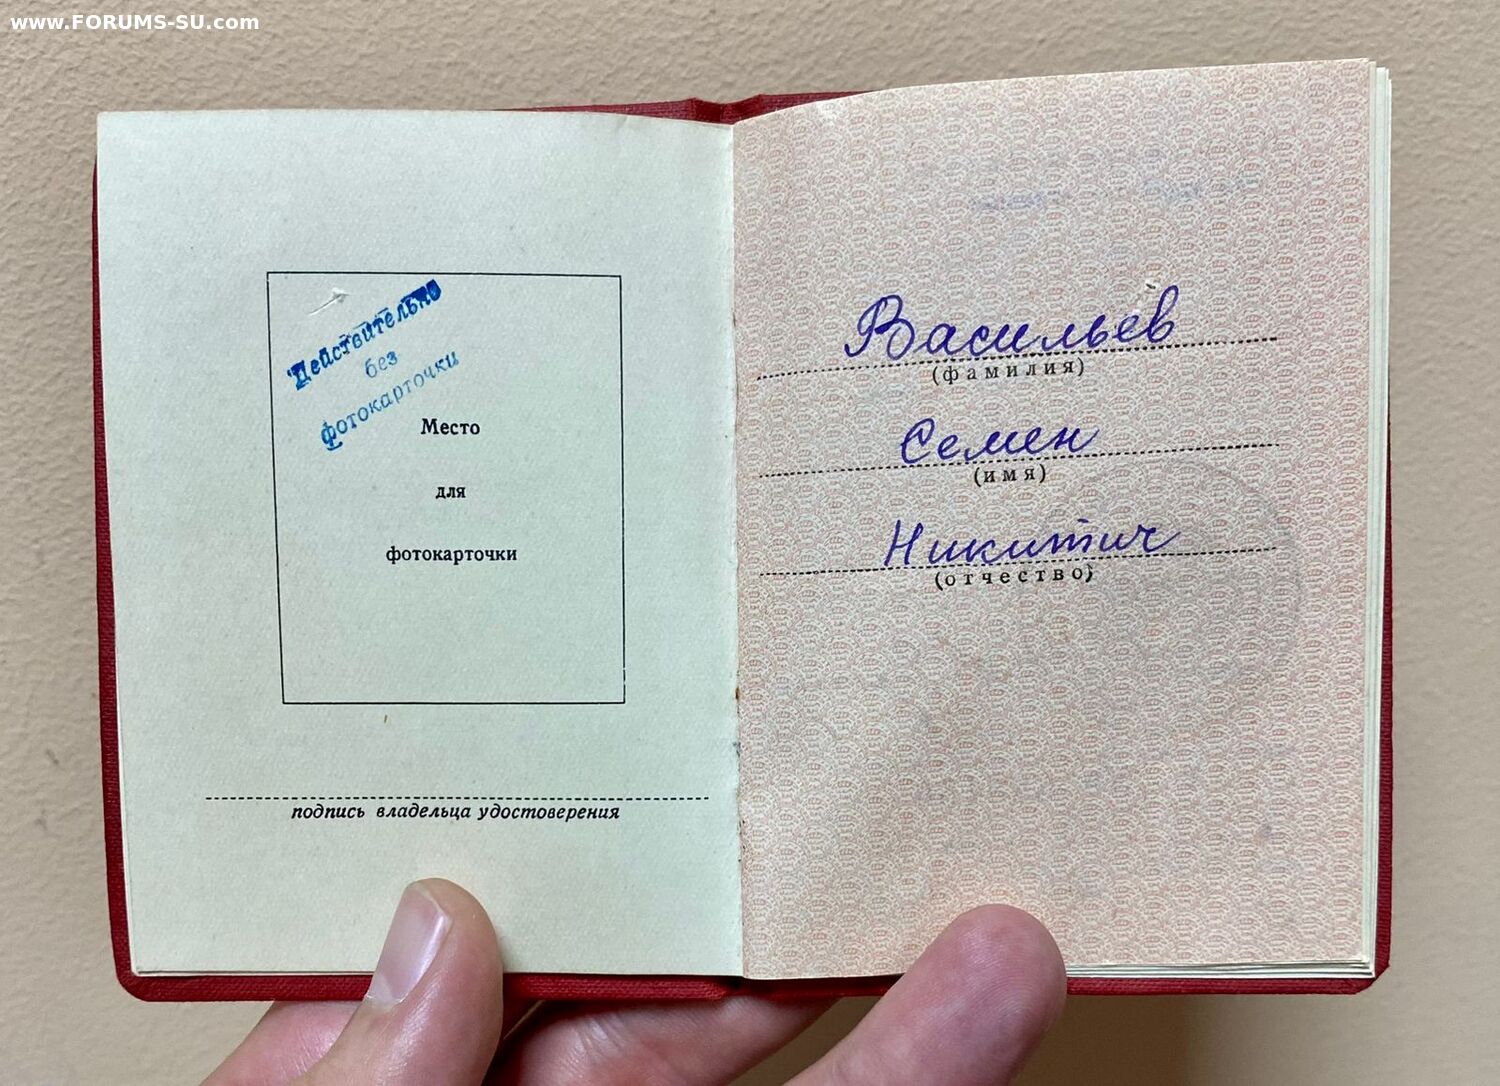 www.FORUMS-SU.com
Действительно
без
фотокарточки
Место
для
фотокарточки
подпись владельца удостоверения
Васильев
(фамилия)
Семен
(имя)
Никитич
(отчество)